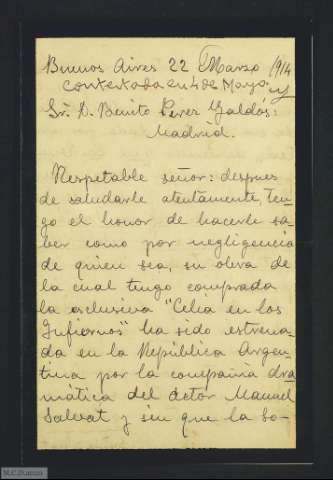 Buenos Aires 22 Marzo 1914
Contestada en 4 de Mayo
Sr. D. Benito Perez Galdós:
Madrid.
Respetable señor: despues
de saludarle atentamente, ten-
go el honor de hacerle sa-
ber como por negligencia
de quien sea, su obra de
la cual tengo comprada
la esclusiva "Celia en los
Infiernos" ha sido estrena-
da en la República Argen-
tina por la compañia dra-
mática del actor Manuel
Salvat y sin que la So-